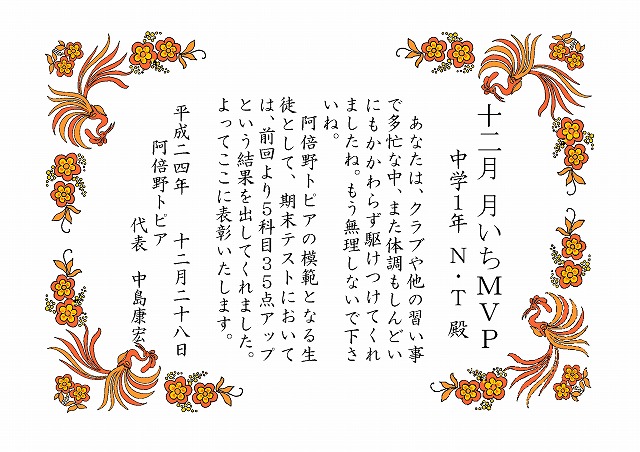 十二月 月いちMVP
中学1年 N・T 殿
あなたは、クラブや他の習い事
で多忙な中、また体調もしんどい
にもかかわらず駆けつけてくれ
ましたね。もう無理しないで下さ
いね。
阿倍野トピアの模範となる生
徒として、期末テストにおいて
は、前回より5科目35点アップ
という結果を出してくれました。
よってここに表彰いたします。
平成二四年 十二月二十八日
阿倍野トピア
代表 中島康宏